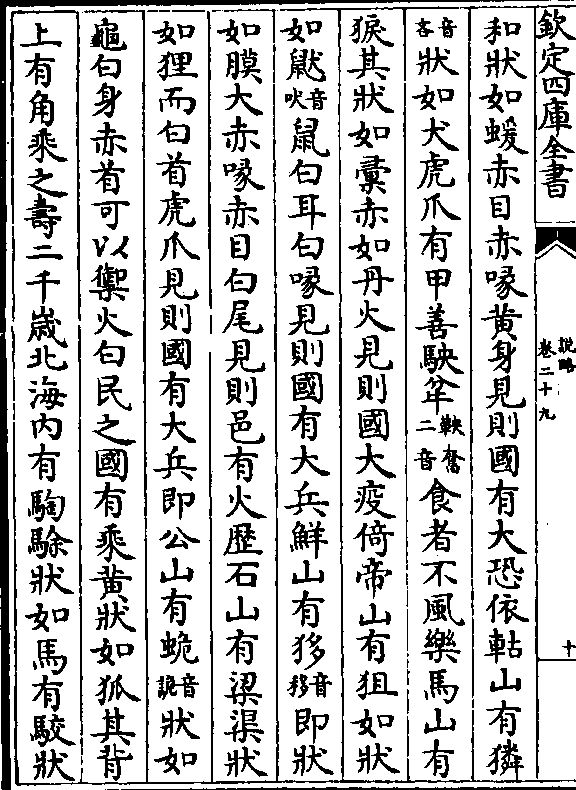 欽定四庫全書
說略
卷二十九
十
和狀如蝯赤目赤喙黄身見則國有大恐依軲山有獜
音吝狀如犬虎爪有甲善駚坌鞅奮二音食者不風樂馬山有
㹻其狀如彚赤如丹火見則國大疫倚帝山有狙如狀
如鼣音吠鼠白耳白喙見則國有大兵鮮山有㺄音移即狀
如膜犬赤喙赤目白尾見則邑有火歴石山有梁渠狀
如狸而白首虎爪見則國有大兵即公山有蛫音詭狀如
龜白身赤首可以禦火白民之國有乘黄狀如狐其背
上有角乘之壽二千歳北海内有騊駼狀如馬有駮狀